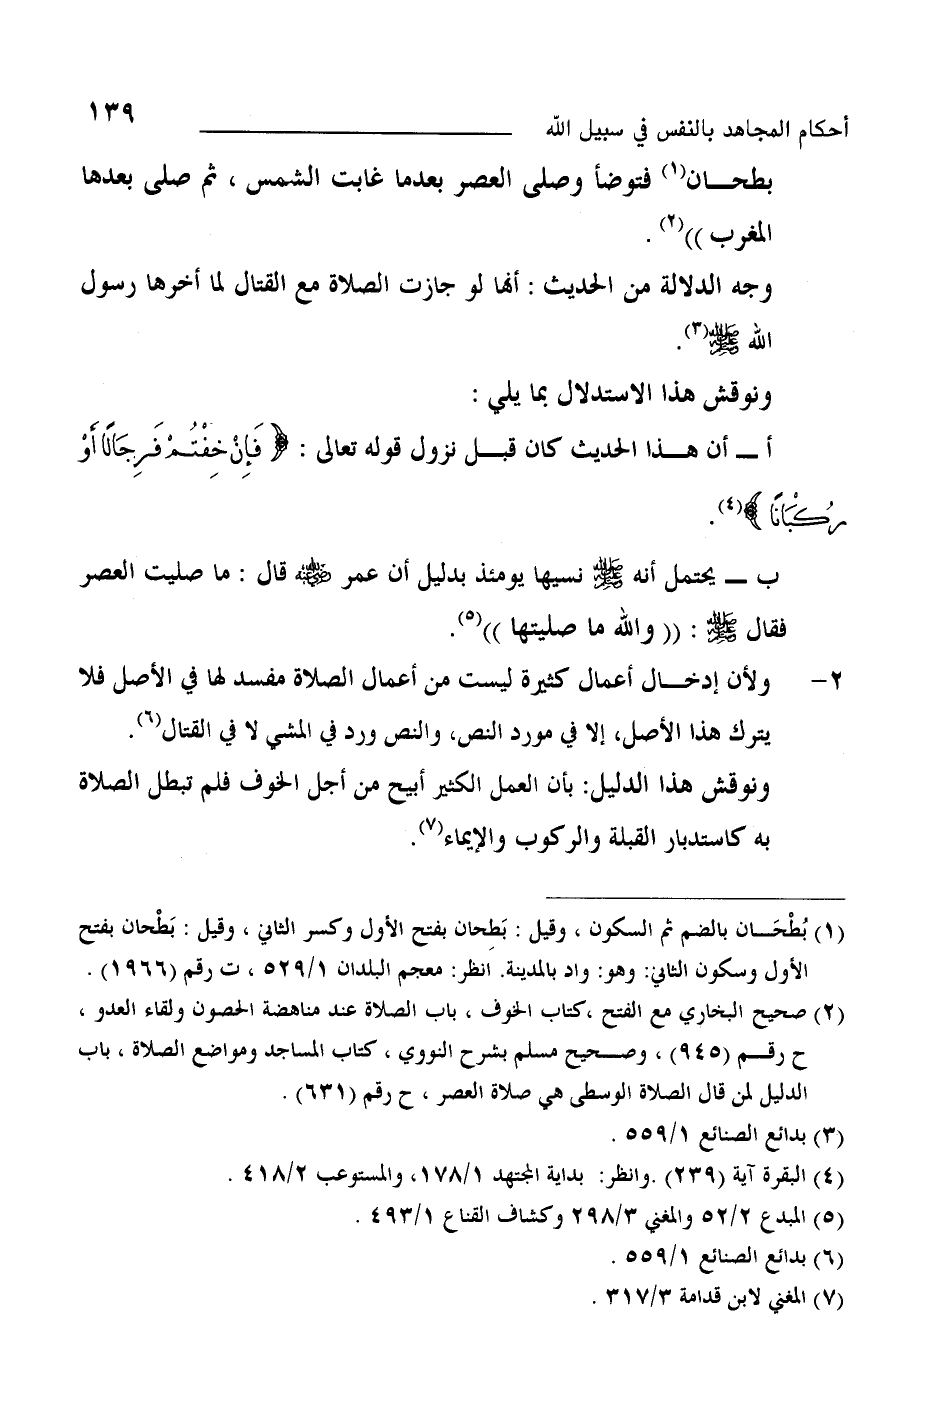 أحكام المجاهد بالنفس في سبيل الله ١٣٩
بطحـــان(١) فتوضأ وصلى العصر بعدما غابت الشمس ، ثم صلى بعدها
المغرب ))(٢) .
وجه الدلالة من الحديث : أنها لو جازت الصلاة مع القتال لما أخرها رسول
الله ﷺ(٣).
ونوقش هذا الاستدلال بما يلي :
أ ــ أن هـــذا الحديث كان قبـــل نزول قوله تعالى : ﴿ فَإِنْ خِفْتُمْ فَرِجَالًا أَوْ
رُكْبَانًا ﴾(٤).
ب ــ يحتمل أنه ﷺ نسيها يومئذ بدليل أن عمر رضي الله عنه قال : ما صليت العصر
فقال ﷺ : (( والله ما صليتها ))(٥).
٢- ولأن إدخـــال أعمال كثيرة ليست من أعمال الصلاة مفسد لها في الأصل فلا
يترك هذا الأصل، إلا في مورد النص، والنص ورد في المشي لا في القتال(٦).
ونوقش هذا الدليل: بأن العمل الكثير أبيح من أجل الخوف فلم تبطل الصلاة
به كاستدبار القبلة والركوب والإيماء(٧).
(١) بُطْحَـــان بالضم ثم السكون ، وقيل : بَطِحان بفتح الأول وكسر الثاني ، وقيل : بَطْحان بفتح
الأول وسكون الثاني: وهو: واد بالمدينة. انظر: معجم البلدان ٥٢٩/١ ، ت رقم (١٩٦٦) .
(٢) صحيح البخاري مع الفتح ،كتاب الخوف ، باب الصلاة عند مناهضة الحصون ولقاء العدو ،
ح رقـــم (٩٤٥) ، وصـــحيح مسلم بشرح النووي ، كتاب المساجد ومواضع الصلاة ، باب
الدليل لمن قال الصلاة الوسطى هي صلاة العصر ، ح رقم (٦٣١) .
(٣) بدائع الصنائع ٥٥٩/١ .
(٤) البقرة آية (٢٣٩) .وانظر: بداية المجتهد ١٧٨/١، والمستوعب ٤١٨/٢ .
(٥) المبدع ٥٢/٢ والمغني ٢٩٨/٣ وكشاف القناع ٤٩٣/١ .
(٦) بدائع الصنائع ٥٥٩/١ .
(٧) المغني لابن قدامة ٣١٧/٣ .